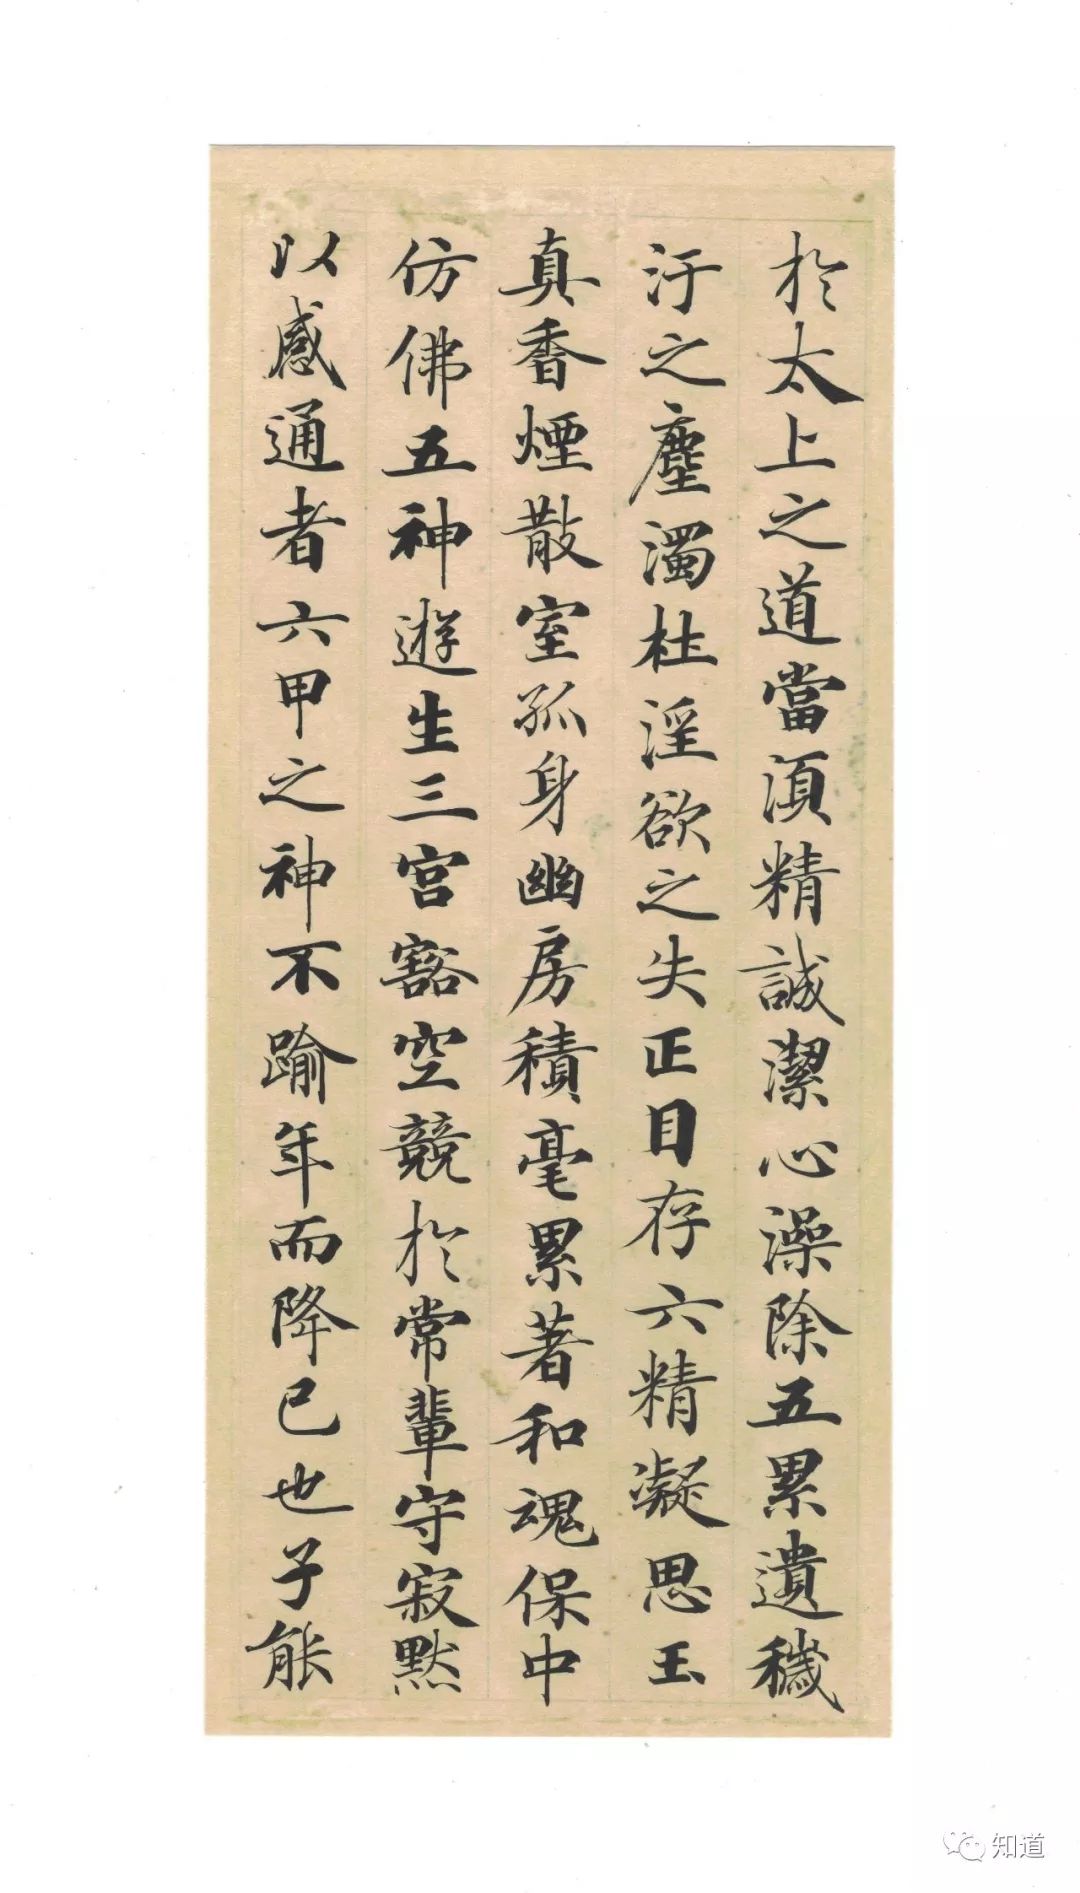 於太上之道當湏精誠潔心澡除五累遺穢
汙之塵濁杜淫欲之失正目存六精凝思玉
真香煙散室孤身幽房積毫累著和魂保中
仿佛五神遊生三宮豁空競於常輩守寂默
以感通者六甲之神不踰年而降已也子能
知道